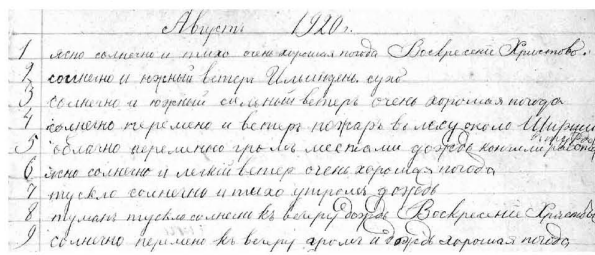 Августъ 1920 г.
1 ясно солнечно и тихо очень хорошая погода Воскресение Христово.
2 солнечно и южный ветеръ Ильиндень сухо
3 солнечно и южный сильный ветеръ очень хорошая погода
4 солнечно перемено и ветеръ пожаръ во лесу около
5 облачно переменого громъ местами дождь кончили
6 ясно солнечно и легкий ветер очень хорошая погода
7 тускло солнечно и тихо утромъ дождь
8 туманъ тускло солнечно къ вечеру дождь Воскресение Христово
9 солнечно перемено къ вечеру громъ и дождь хорошая погода